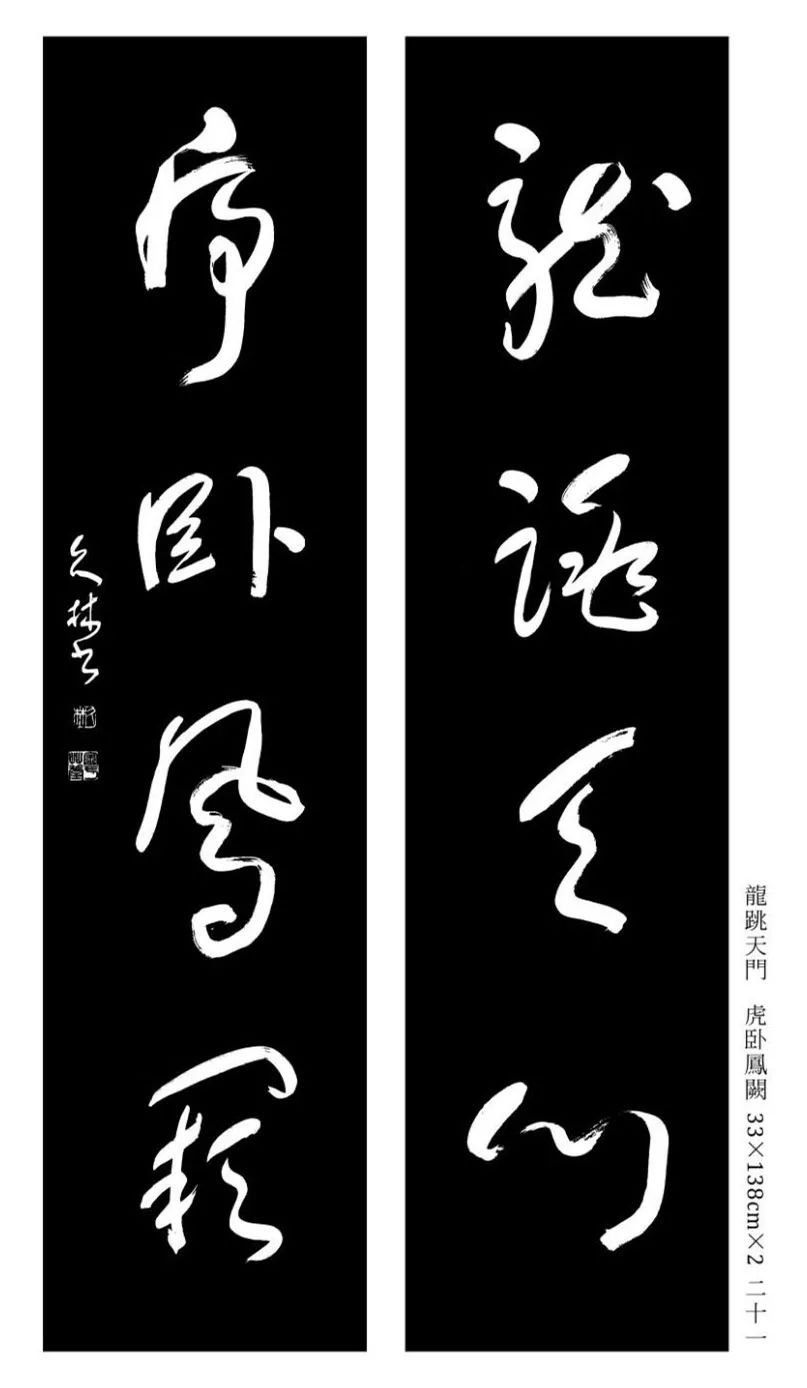 龍跳天門
虎卧鳳闕
久林书
龍跳天門　虎卧鳳闕 33×138cm×2 二十一